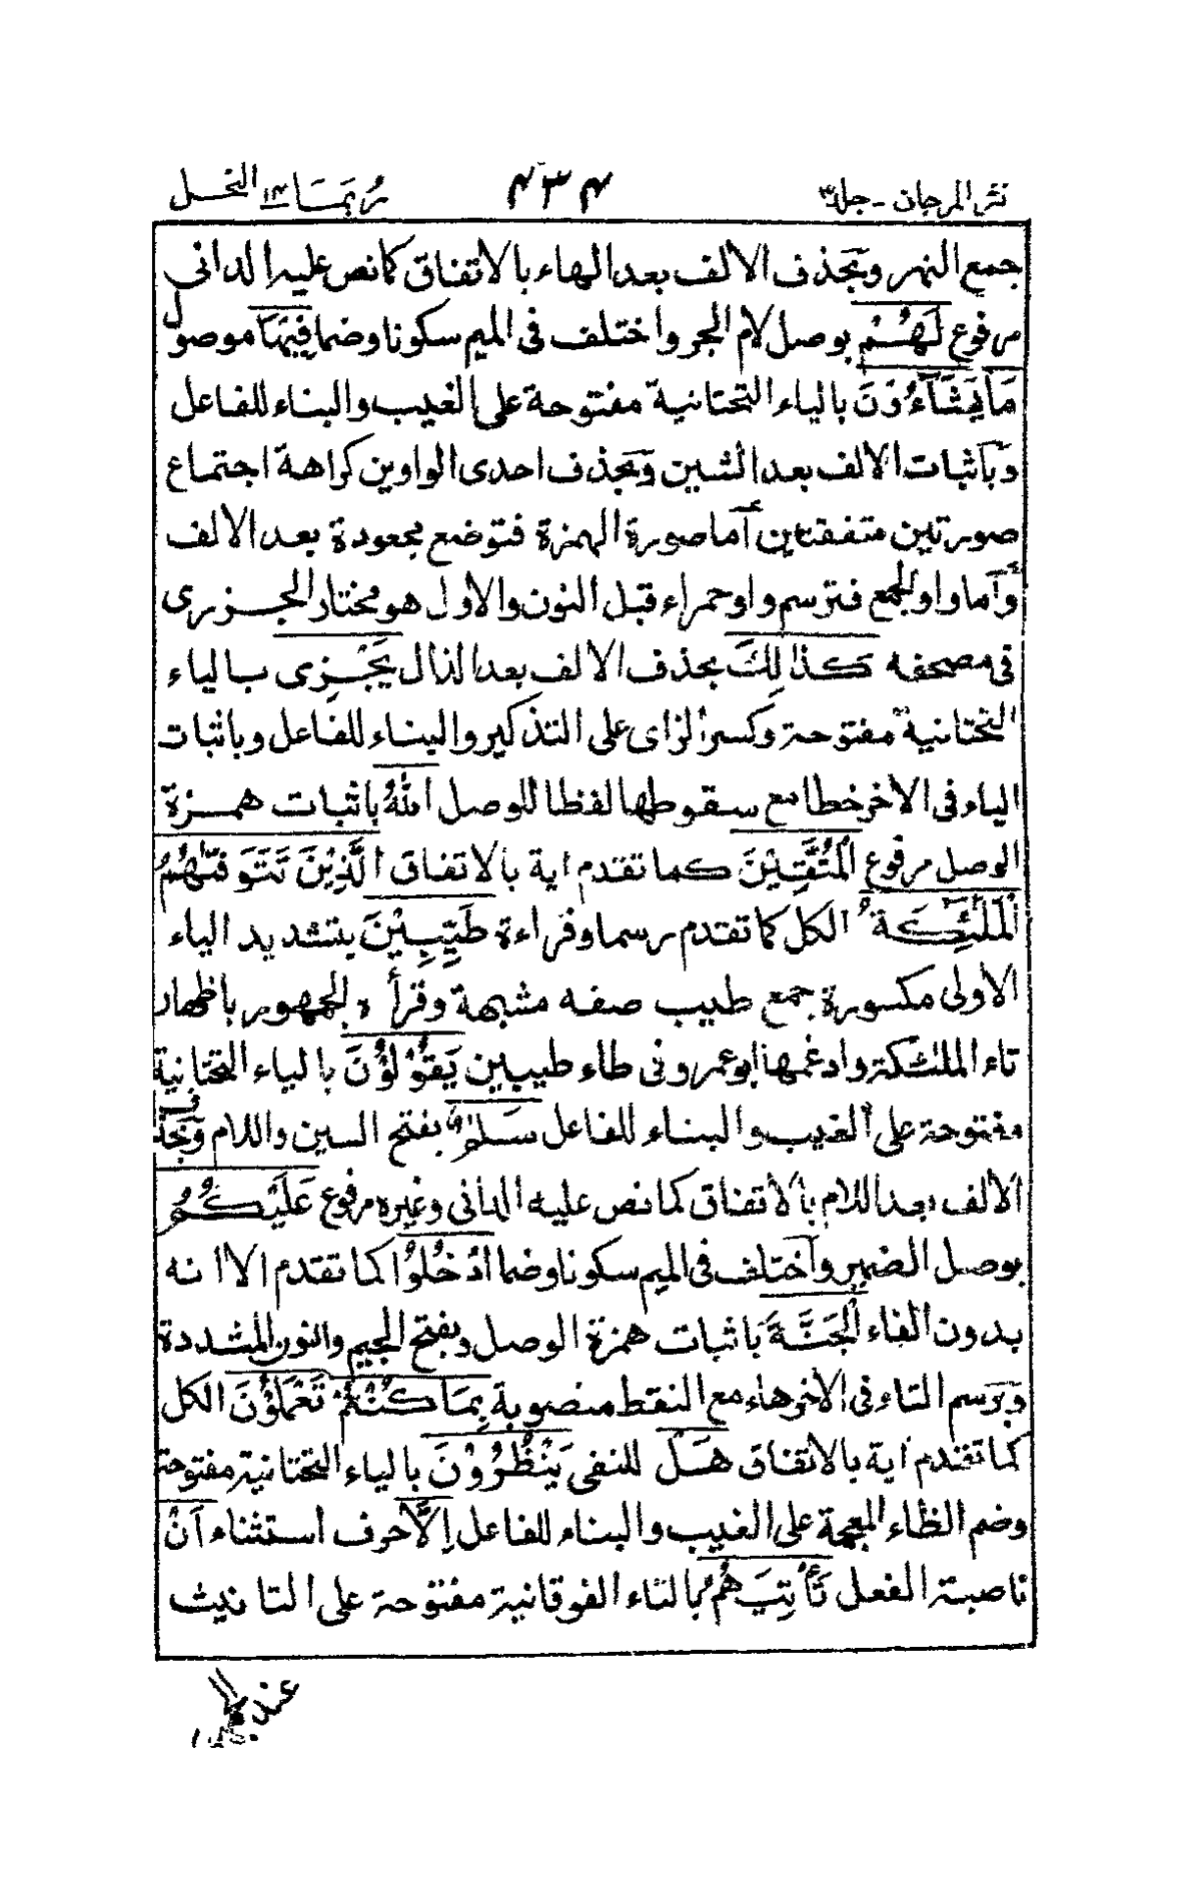 نثر المرجان - جلد ٣ ٤٣٤ ربما ١٤ النحل
جمع النهر وبحذف الالف بعد الهاء بالاتفاق كما نص عليه الدانى
مرفوع لَهُمْ بوصل لام الجر واختلف فى الميم سكونا وضما فِيْهَا موصول
مَا يَشَآءُوْنَ بالياء التحتانية مفتوحة على الغيب والبناء للفاعل
وباثبات الالف بعد الشين وبحذف احدى الواوين كراهة اجتماع
صورتين متفقتين اما صورة الهمزة فتوضع مجعودة بعد الالف
واما واو الجمع فترسم واو حمراء قبل النون والاول هو مختار الجزرى
فى مصحفه كَذٰلِكَ بحذف الالف بعد الذال يَجْزِى بالياء
التحتانية مفتوحة وكسر الزاى على التذكير والبناء للفاعل وباثبات
الياء فى الاخر خطا مع سقوطها لفظا للوصل اللهُ باثبات همزة
الوصل مرفوع الْمُتَّقِيْنَ كما تقدم اية بالاتفاق الَّذِيْنَ تَتَوَفّٰىهُمُ
الْمَلٰٓئِكَةُ الكل كما تقدم رسما وقراءة طَيِّبِيْنَ بتشديد الياء
الاولى مكسورة جمع طيب صفه مشبهة وقرأه الجمهور باظهار
تاء الملئكة وادغمها ابو عمرو فى طاء طيبين يَقُوْلُوْنَ بالياء التحتانية
مفتوحة على الغيب والبناء للفاعل سَلٰمٌ بفتح السين واللام وبحذف
الالف بعد اللام بالاتفاق كما نص عليه الدانى وغيره مرفوع عَلَيْكُمُ
بوصل الضمير واختلف فى الميم سكونا وضما ادْخُلُوْا كما تقدم الا انه
بدون الفاء الْجَنَّةَ باثبات همزة الوصل وبفتح الجيم والنون المشددة
وبرسم التاء فى الاخر هاء مع النقط منصوبة بِمَا كُنْتُمْ تَعْمَلُوْنَ الكل
كما تقدم اية بالاتفاق هَلْ للنفى يَنْظُرُوْنَ بالياء التحتانية مفتوحة
وضم الظاء المعجمة على الغيب والبناء للفاعل اِلَّا حرف استثناء اَنْ
ناصبة الفعل تَأْتِيَهُمُ بالتاء الفوقانية مفتوحة على التانيث